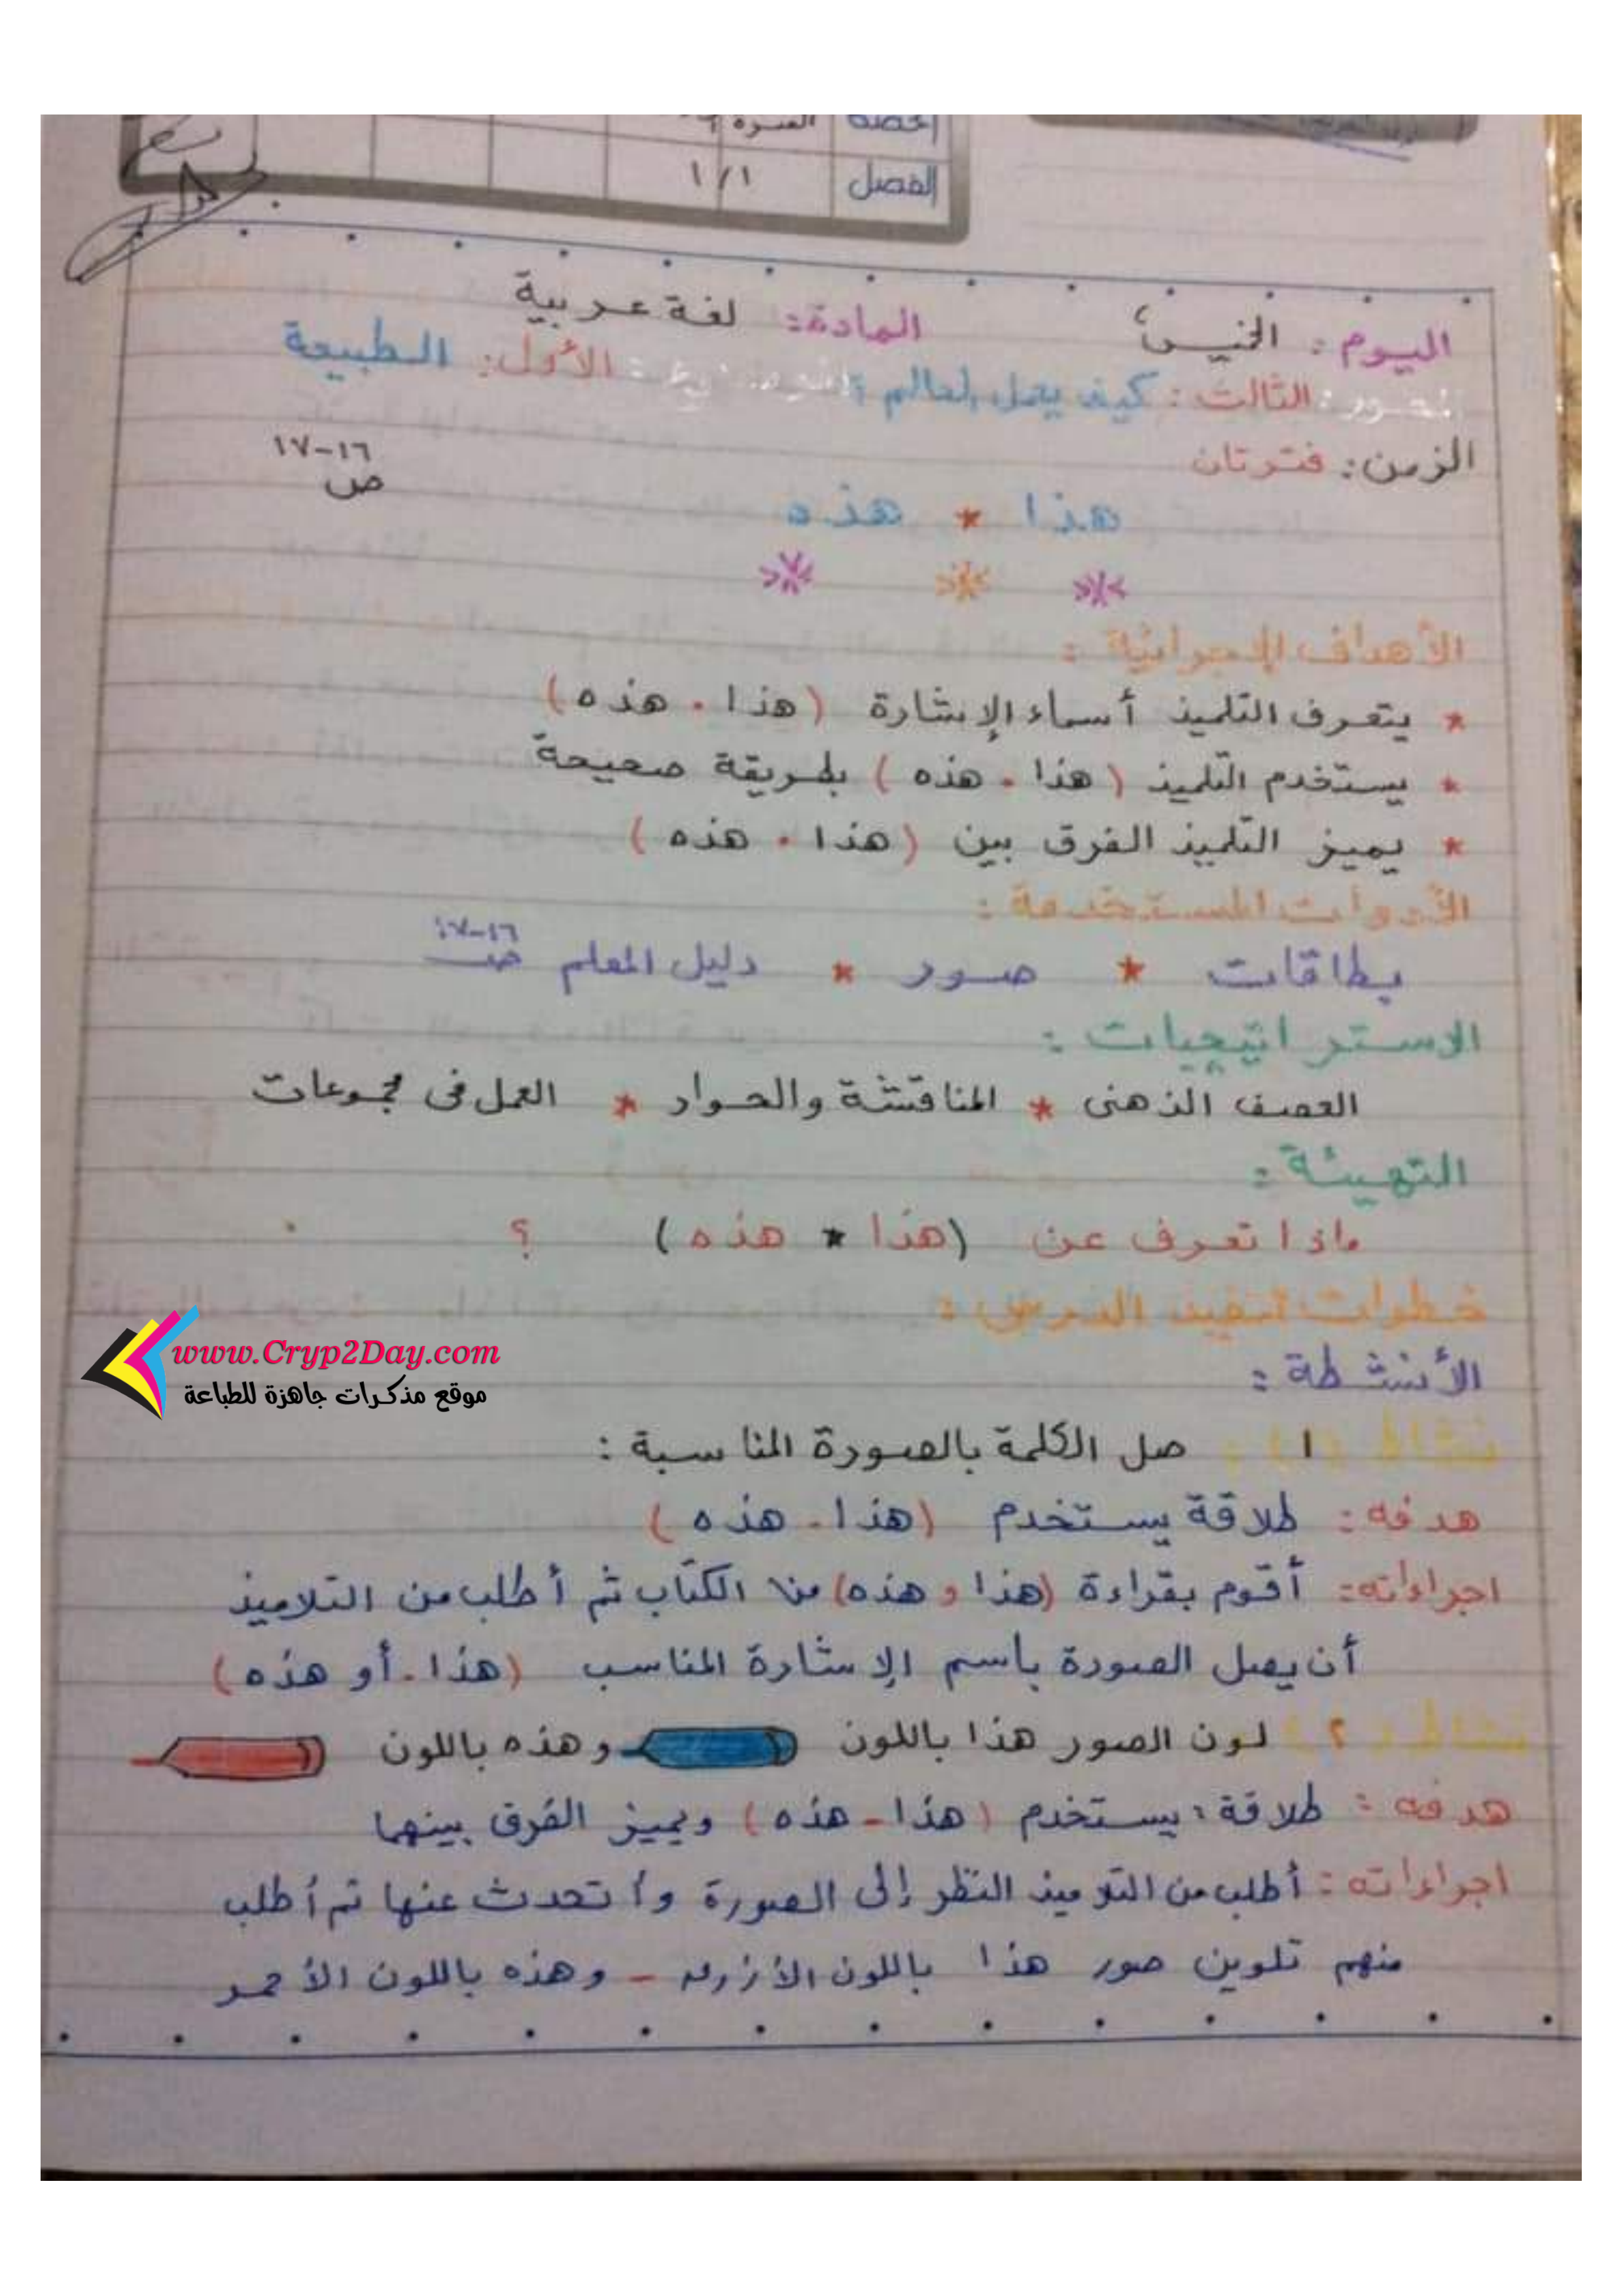 الحصة الفترة
الفصل ١/١
اليوم: الخميس المادة: لغة عربية
المحور: الثالث: كيف يعمل العالم؟ الموضوع: الأول: الطبيعة
الزمن: فترتان ص ١٦-١٧
هذا * هذه
الأهداف الإجرائية:
* يتعرف التلميذ أسماء الإشارة (هذا . هذه)
* يستخدم التلميذ (هذا . هذه) بطريقة صحيحة
* يميز التلميذ الفرق بين (هذا . هذه)
الأدوات المستخدمة:
بطاقات * صور * دليل المعلم ص ١٦-١٧
الاستراتيجيات:
العصف الذهنى * المناقشة والحوار * العمل فى مجموعات
التهيئة:
ماذا تعرف عن (هذا * هذه) ؟
خطوات تنفيذ الدرس:
www.Cryp2Day.com
موقع مذكرات جاهزة للطباعة
الأنشطة:
نشاط (١): ١ صل الكلمة بالصورة المناسبة:
هدفه: طلاقة يستخدم (هذا - هذه)
اجراءاته: أقوم بقراءة (هذا و هذه) من الكتاب ثم أطلب من التلاميذ
أن يصل الصورة بأسم الإشارة المناسب (هذا - أو هذه)
نشاط ٢ لون الصور هذا باللون وهذه باللون
هدفه: طلاقة: يستخدم (هذا - هذه) ويميز الفرق بينهما
اجراءاته: أطلب من التلاميذ النظر إلى الصورة وأتحدث عنها ثم أطلب
منهم تلوين صور هذا باللون الأزرق - وهذه باللون الأحمر